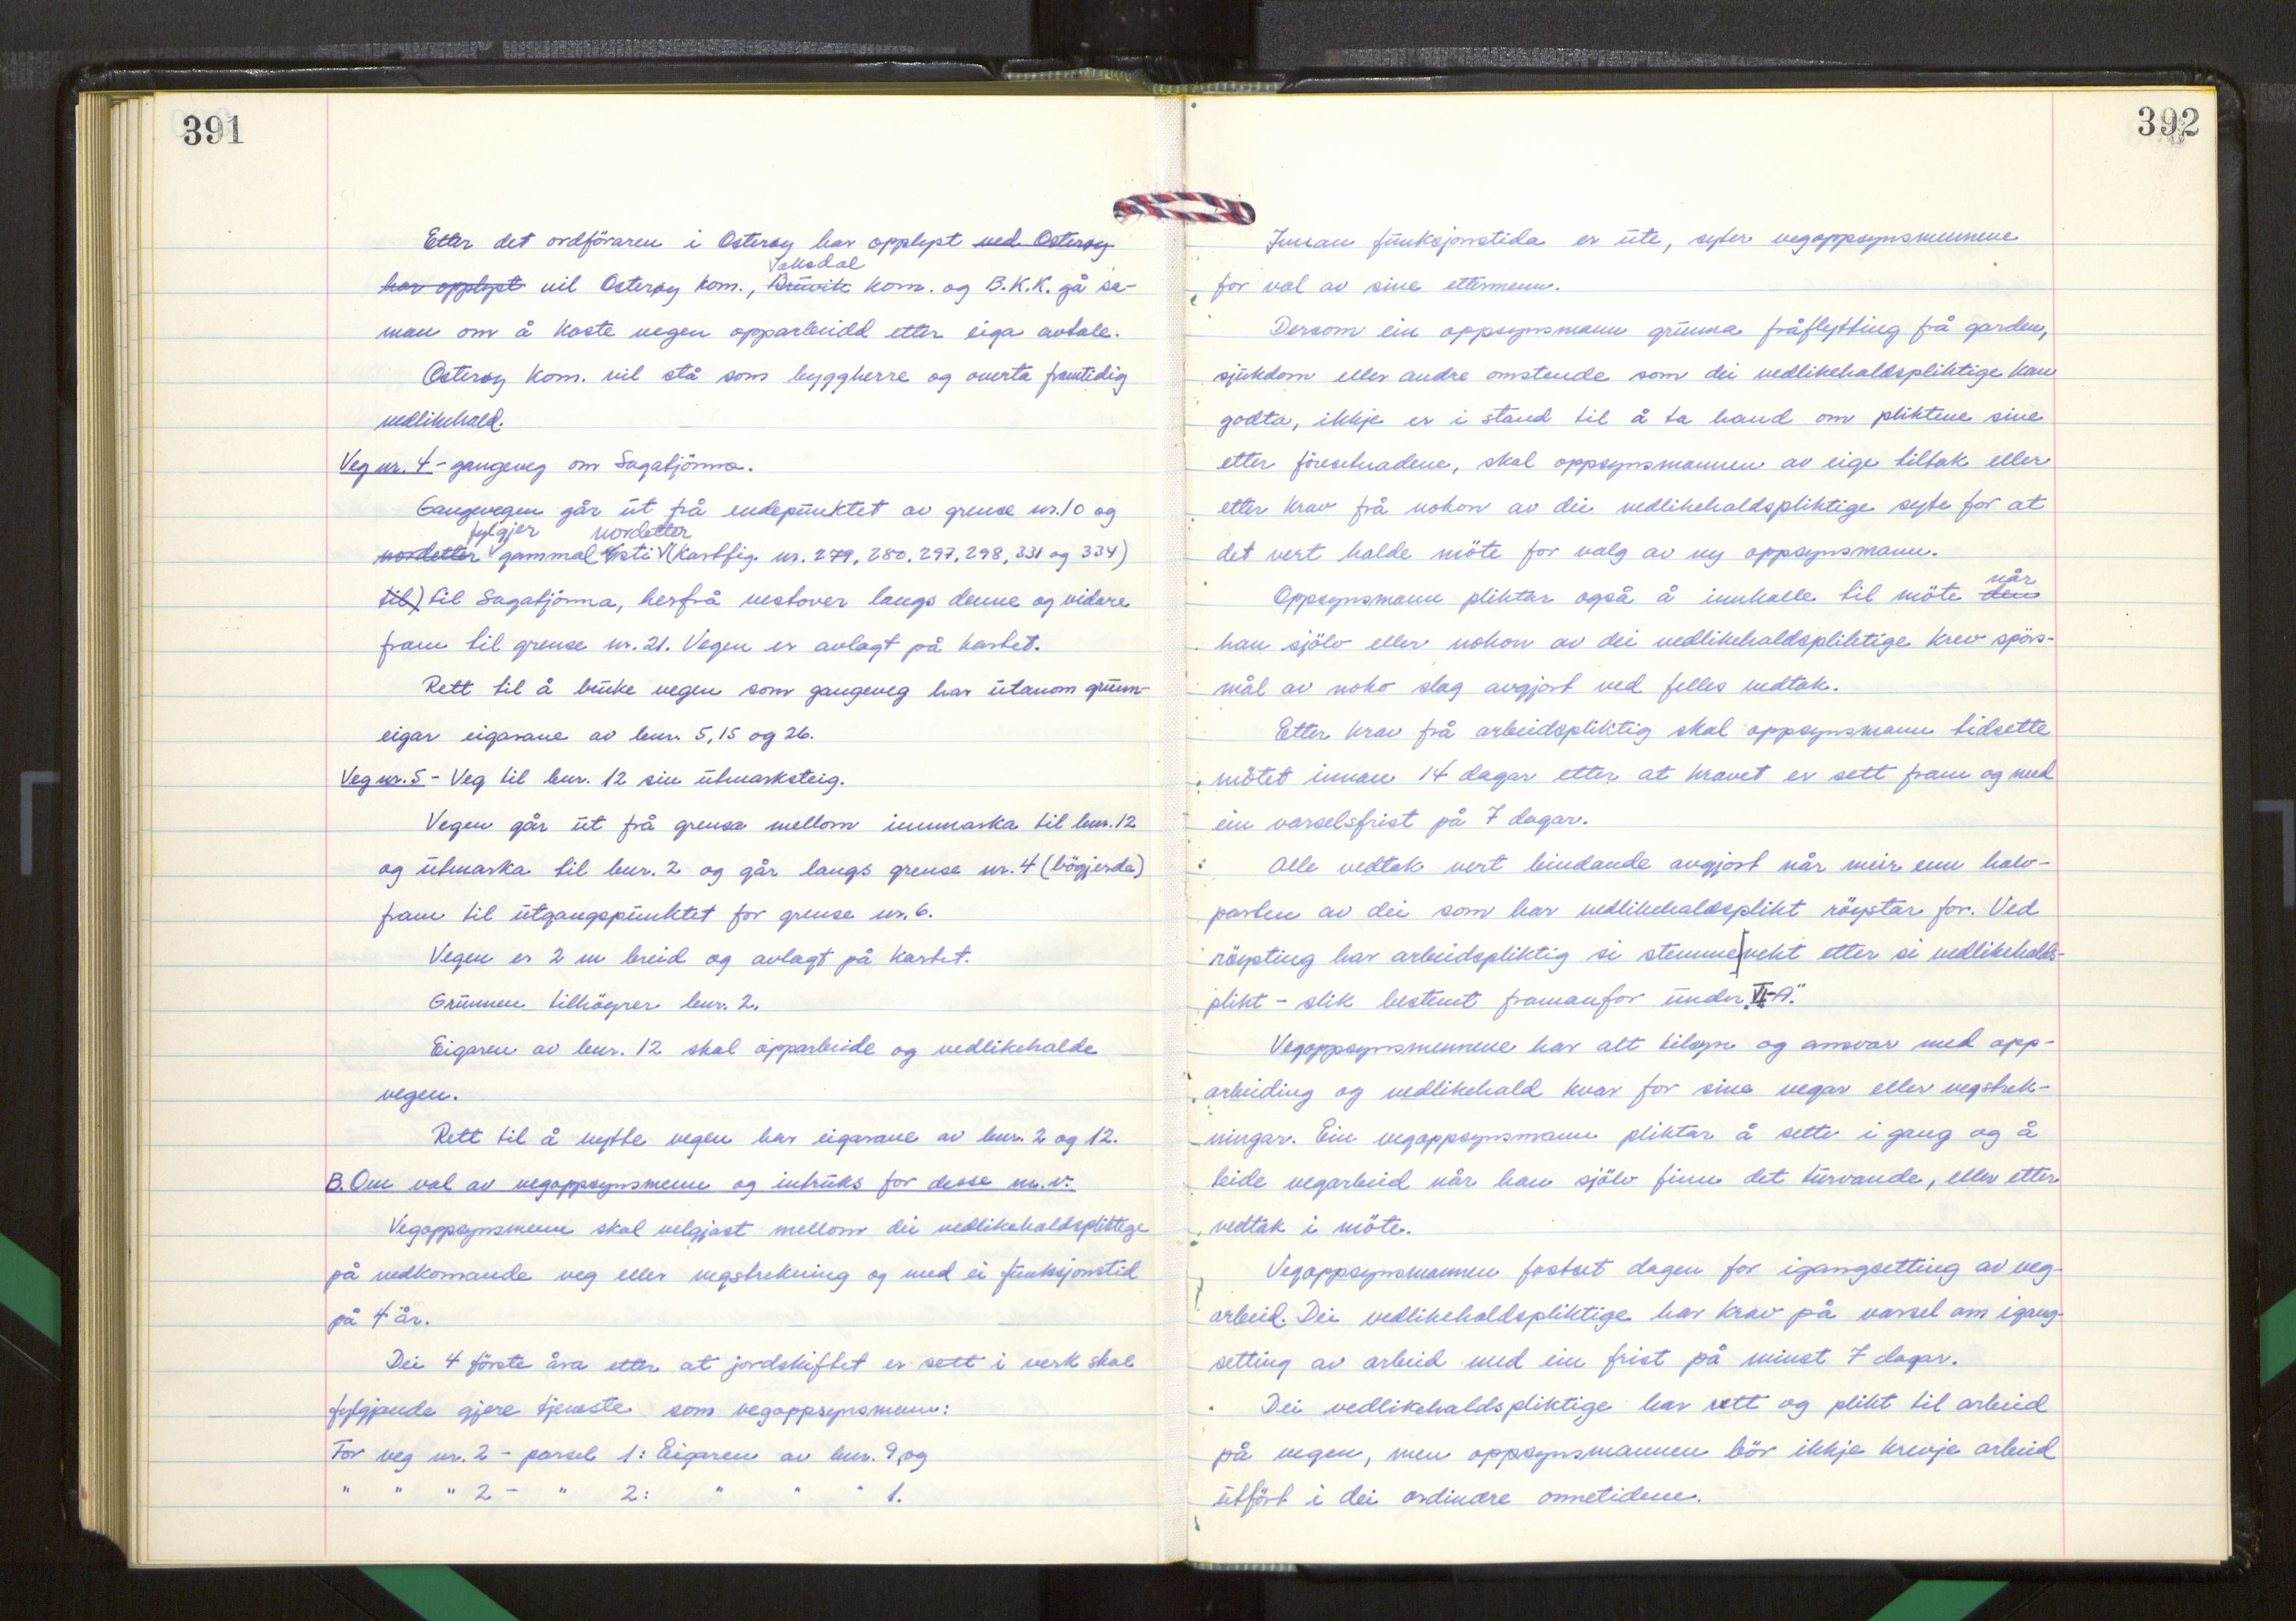 391
Etter det ordföraren i Osteröy har opplyst ved Osteröy
Vaksdal
har opplyst vil Osteröy kom., Bruvik kom. og B.K.K. gå sa-
man om å koste vegen opparbeidd etter eiga avtale.
Osteröy kom. vil stå som byggherre og overta framtidig
vedlikehald.
Veg nr. 4 - gangeveg om Sagatjönna.
Gangevegen går ut frå endepunktet av grense nr. 10 og
fylgjer nordetter
nordetter gammal sti (kartfig. nr. 279, 280, 297, 298, 331 og 334)
til) til Sagatjönna, herfrå vestover langs denne og vidare
fram til grense nr. 21. Vegen er avlagt på kartet.
Rett til å bruke vegen som gangeveg har utanom grunn-
eigar eigarane av bnr. 5, 15 og 26.
Veg nr. 5 - Veg til bnr. 12 sin utmarksteig.
Vegen går ut frå grensa mellom innmarka til bnr. 12
og utmarka til bnr. 2 og går langs grense nr. 4 (bögjerda)
fram til utgangspunktet for grense nr. 6.
Vegen er 2 m breid og avlagt på kartet.
Grunnen tilhöyrer bnr. 2.
Eigaren av bnr. 12 skal opparbeide og vedlikehalde
vegen.
Rett til å nytte vegen har eigarane av bnr. 2 og 12.
B. Om val av vegoppsynsmenn og intruks for desse m.v.
Vegoppsynsmenn skal velgjast mellom dei vedlikehaldspliktige
på vedkomande veg eller vegstrekning og med ei funksjonstid
på 4 år.
Dei 4 förste åra etter at jordskiftet er sett i verk skal
fylgjande gjere tjeneste som vegoppsynsmenn:
For veg nr. 2 - parsel 1: Eigaren av bnr. 9, og
" " " 2 - " 2: " " " 1.
392
Innan funksjonstida er ute, syter vegoppsynsmennene
for val av sine ettermenn.
Dersom ein oppsynsmann grunna fråflytting frå garden,
sjukdom eller andre omstende som dei vedlikehaldspliktige kan
godta, ikkje er i stand til å ta hand om pliktene sine
etter föresetnadene, skal oppsynsmannen av eige tiltak eller
etter krav frå nokon av dei vedlikehaldspliktige syte for at
det vert halde möte for valg av ny oppsynsmann.
når
Oppsynsmann pliktar også å innkalle til möte den
han sjölv eller nokon av dei vedlikehaldspliktige krev spörs-
mål av noko slag avgjort ved felles vedtak.
Etter krav frå arbeidspliktig skal oppsynsmann tidsette
mötet innan 14 dagar etter at kravet er sett fram og med
ein varselsfrist på 7 dagar.
Alle vedtak vert bindande avgjort når meir enn halv-
parten av dei som har vedlikehaldsplikt röystar for. Ved
röysting har arbeidspliktig si stemmevekt etter si vedlikehalds-
plikt - slik bestemt framanfor under "VI-A".
Vegoppsynsmennene har alt tilsyn og ansvar med opp-
arbeiding og vedlikehald kvar for sine vegar eller vegstrek-
ningar. Ein vegoppsynsmann pliktar å sette i gang og å
leide vegarbeid når han sjölv finn det turvande, eller etter
vedtak i möte.
Vegoppsynsmannen fastset dagen for igangsetting av veg-
arbeid. Dei vedlikehaldspliktige har krav på varsel om igang-
setting av arbeid med ein frist på minst 7 dagar.
Dei vedlikehaldspliktige har rett og plikt til arbeid
på vegen, men oppsynsmannen bör ikkje krevje arbeid
utfört i dei ordinære onnetidene.